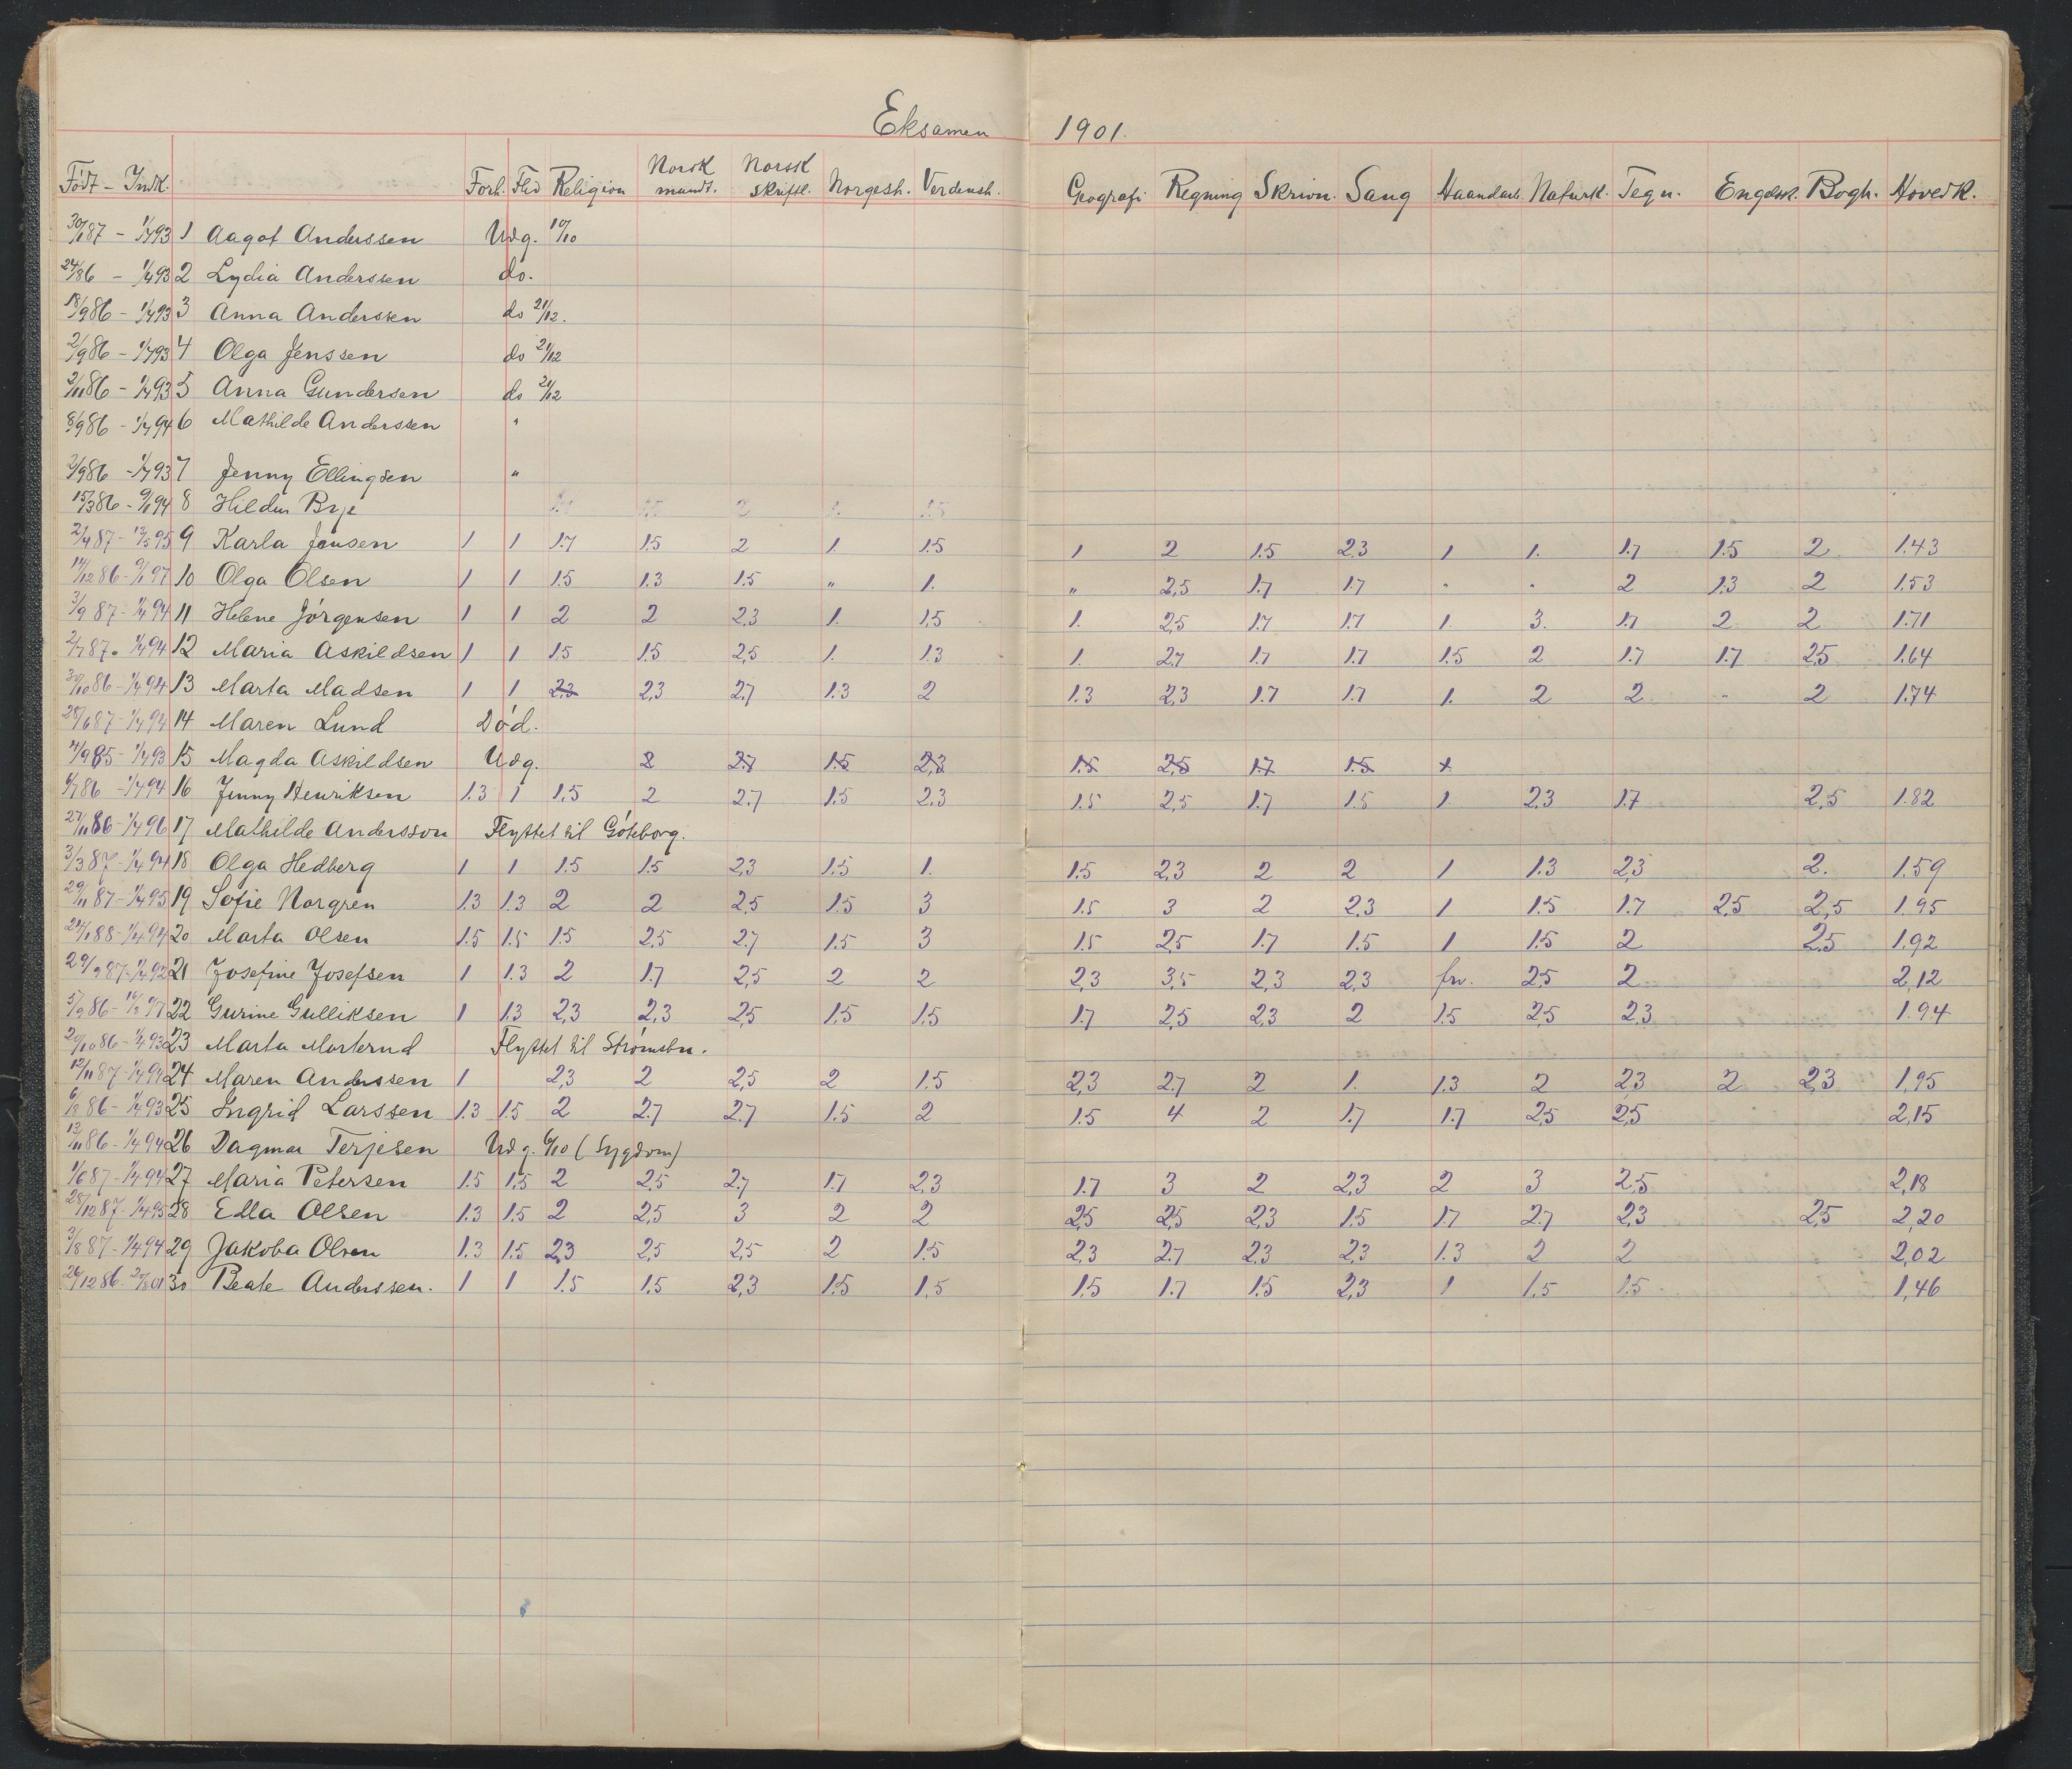 Eksamen 1901.
Født - Indk. Forh. Flid Religion Norsk mundt. Norsk skriftl. Norgesh. Verdensh. Geografi Regning Skrivn. Sang Haandarb. Naturk. Tegn. Engelsk. Bogh. Hovedk.
87 - 1/4 93 1 Aagot Anderssen Udg. 10/10
86 - 1/4 93 2 Lydia Anderssen do.
18/9 86 - 1/4 93 3 Anna Anderssen do 21/12.
2/9 86 - 1/4 93 4 Olga Jenssen do 21/12
2/11 86 - 1/4 93 5 Anna Gundersen do 21/12
8/9 86 - 1/4 94 6 Mathilde Anderssen "
3/9 86 - 1/4 93 7 Jenny Ellingsen "
15/3 86 - 94 8 Hildur 1.5 2 1. 1.5
21/4 87 - 13/5 95 9 Karla Jensen 1 1 1.7 1.5 2 1. 1.5 1 2 1.5 2.3 1 1. 1.7 1.5 2 1.43
14/12 86 - 97 10 Olga Olsen 1 1 1.5 1.3 1.5 " 1. " 2,5 1.7 1.7 " " 2 1.3 2 1.53
3/9 87 - 1/4 94 11 Helene Jörgensen 1 1 2 2 2.3 1. 1.5 1. 2.5 1.7 1.7 1. 3. 1.7 2 2 1.71
2/7 87 - 1/4 94 12 Maria Askildsen 1 1 1.5 1.5 2,5 1. 1.3 1. 2.7 1.7 1.7 1.5 2 1.7 1.7 2.5 1.64
30/10 86 - 1/4 94 13 Marta Madsen 1 1 2,3 2,3 2.7 1.3 2 1.3 2,3 1.7 1.7 1. 2 2 " 2 1.74
28/6 87 - 1/4 94 14 Maren Lund Död.
4/9 85 - 1/4 93 15 Magda Askildsen Udg. 2 2.7 1.5 2,3 1.5 2,5 1.7 1.5 1
6/7 86 - 1/4 94 16 Jenny Henriksen 1.3 1 1.5 2 2.7 1.5 2.3 1.5 2,5 1.7 1.5 1. 2.3 1.7 2,5 1.82
27/11 86 - 1/4 96 17 Mathilde Andersson Flyttet til Göteborg.
3/3 87 - 1/4 94 18 Olga Hedberg 1 1 1.5 1.5 2,3 1.5 1. 1.5 2,3 2 2 1 1.3 2,3 2. 1.59
29/11 87 - 1/4 95 19 Sofie Norgren 1.3 1.3 2 2 2.5 1.5 3 1.5 3 2 2,3 1 1.5 1.7 2,5 2,5 1.95
88 - 1/4 94 20 Marta Olsen 1.5 1.5 1.5 2,5 2.7 1.5 3 1.5 2,5 1.7 1.5 1 1.5 2 2.5 1.92
29/9 87 - 1/4 92 21 Josefine Josefsen 1 1.3 2 1.7 2,5 2 2 2,3 3,5 2,3 2,3 fri. 2,5 2 2,12
5/9 86 - 97 22 Gurine Gulliksen 1 1.3 2,3 2,3 2,5 1,5 1.5 1.7 2,5 2,3 2 1.5 2,5 2.3 1.94
20/10 86 - 1/4 93 23 Marta Morterud Flyttet til Strömsbu.
12/11 87 - 1/4 94 24 Maren Anderssen 1 2,3 2 2,5 2 1.5 2,3 2.7 2 1. 1.3 2 2,3 2 2,3 1,95
6/8 86 - 1/4 93 25 Ingrid Larssen 1.3 1.5 2 2.7 2.7 1.5 2 1.5 4 2 1.7 1.7 2,5 2,5 2,15
13/11 86 - 1/4 94 26 Dagmar Terjesen Udg. 6/10 (Sygdom)
1/6 87 - 1/4 94 27 Maria Petersen 1.5 1,5 2 2,5 2.7 1.7 2,3 1.7 3 2 2,3 2 3 2,5 2,18
28/12 87 - 1/4 95 28 Edla Olsen 1.3 1.5 2 2,5 3 2 2 2,5 2,5 2,3 1.5 1.7 2.7 2,3 2,5 2,20
3/8 87 - 1/4 94 29 Jakoba Olsen 1.3 1.5 2,3 2,5 2,5 2 1.5 2,3 2.7 2,3 2,3 1.3 2 2 2,02
26/12 86 - 01 30 Beate Anderssen. 1 1 1.5 1.5 2,3 1.5 1,5 1.5 1.7 1.5 2,3 1 1.5 1.5 1,46